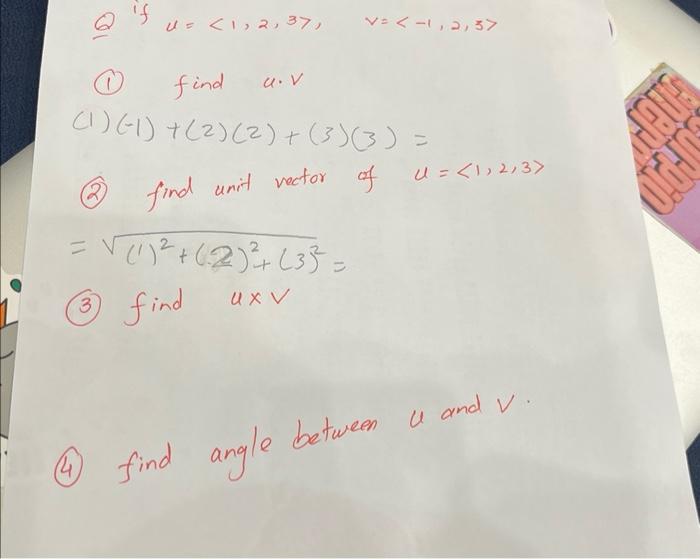 Q if u = <1, 2, 3>, v = <-1, 2, 3>
① find u.v
(1)(-1) + (2)(2) + (3)(3) =
② find unit vector of u = <1, 2, 3>
= √(1)² + (2)² + (3)² =
③ find u x v
④ find angle between u and v.